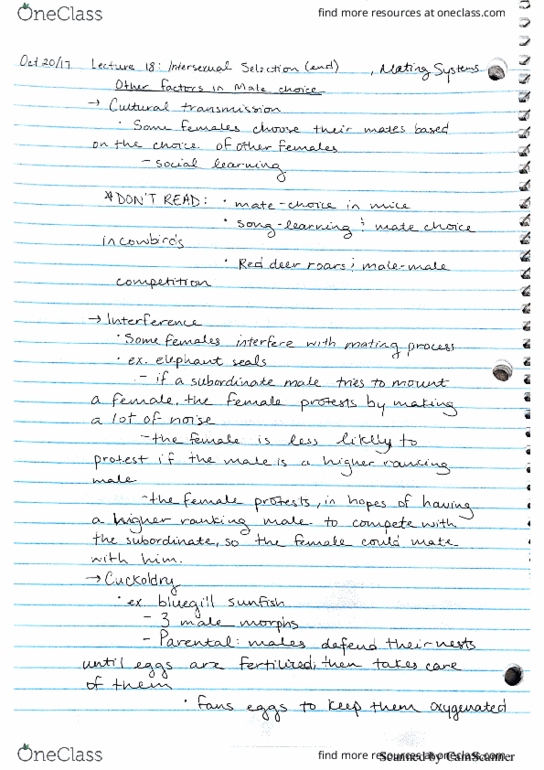 OneClass
find more resources at oneclass.com
Oct 20/17 Lecture 18: Intersexual Selection (end) , Mating Systems
Other factors in Male choice
→ Cultural transmission
· Some females choose their mates based
on the choice of other females
- social learning
*DON'T READ: · mate-choice in mice
· song-learning & mate choice
in cowbirds
· Red deer roars & male-male
competition
→ Interference
· Some females interfere with mating process
· ex. elephant seals
- if a subordinate male tries to mount
a female, the female protests by making
a lot of noise
- the female is less likely to
protest if the male is a higher ranking
male
- the female protests, in hopes of having
a higher ranking male to compete with
the subordinate, so the female could mate
with him.
→ Cuckoldry
· ex. bluegill sunfish
- 3 male morphs
- Parental: males defend their nests
until eggs are fertilized, then takes care
of them
· fans eggs to keep them oxygenated
OneClass
find more resources at oneclass.com
Scanned by CamScanner